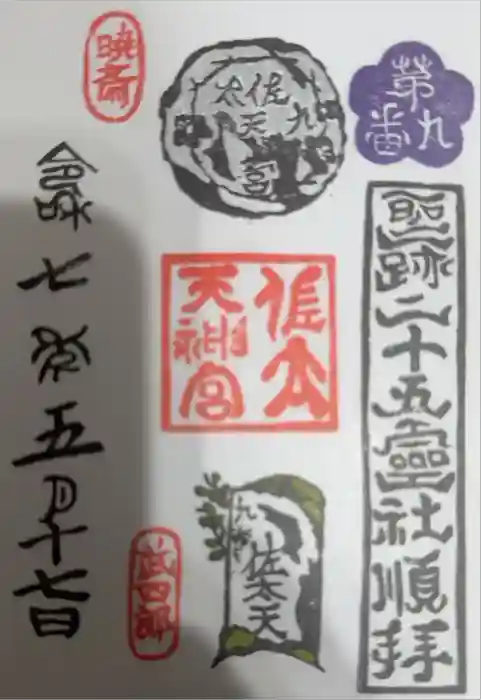 第九番
聖跡二十五霊社順拝
九
佐太天宮
佐太
天神宮
九番
佐太天
暁斎
武四郎
令和七年五月十七日